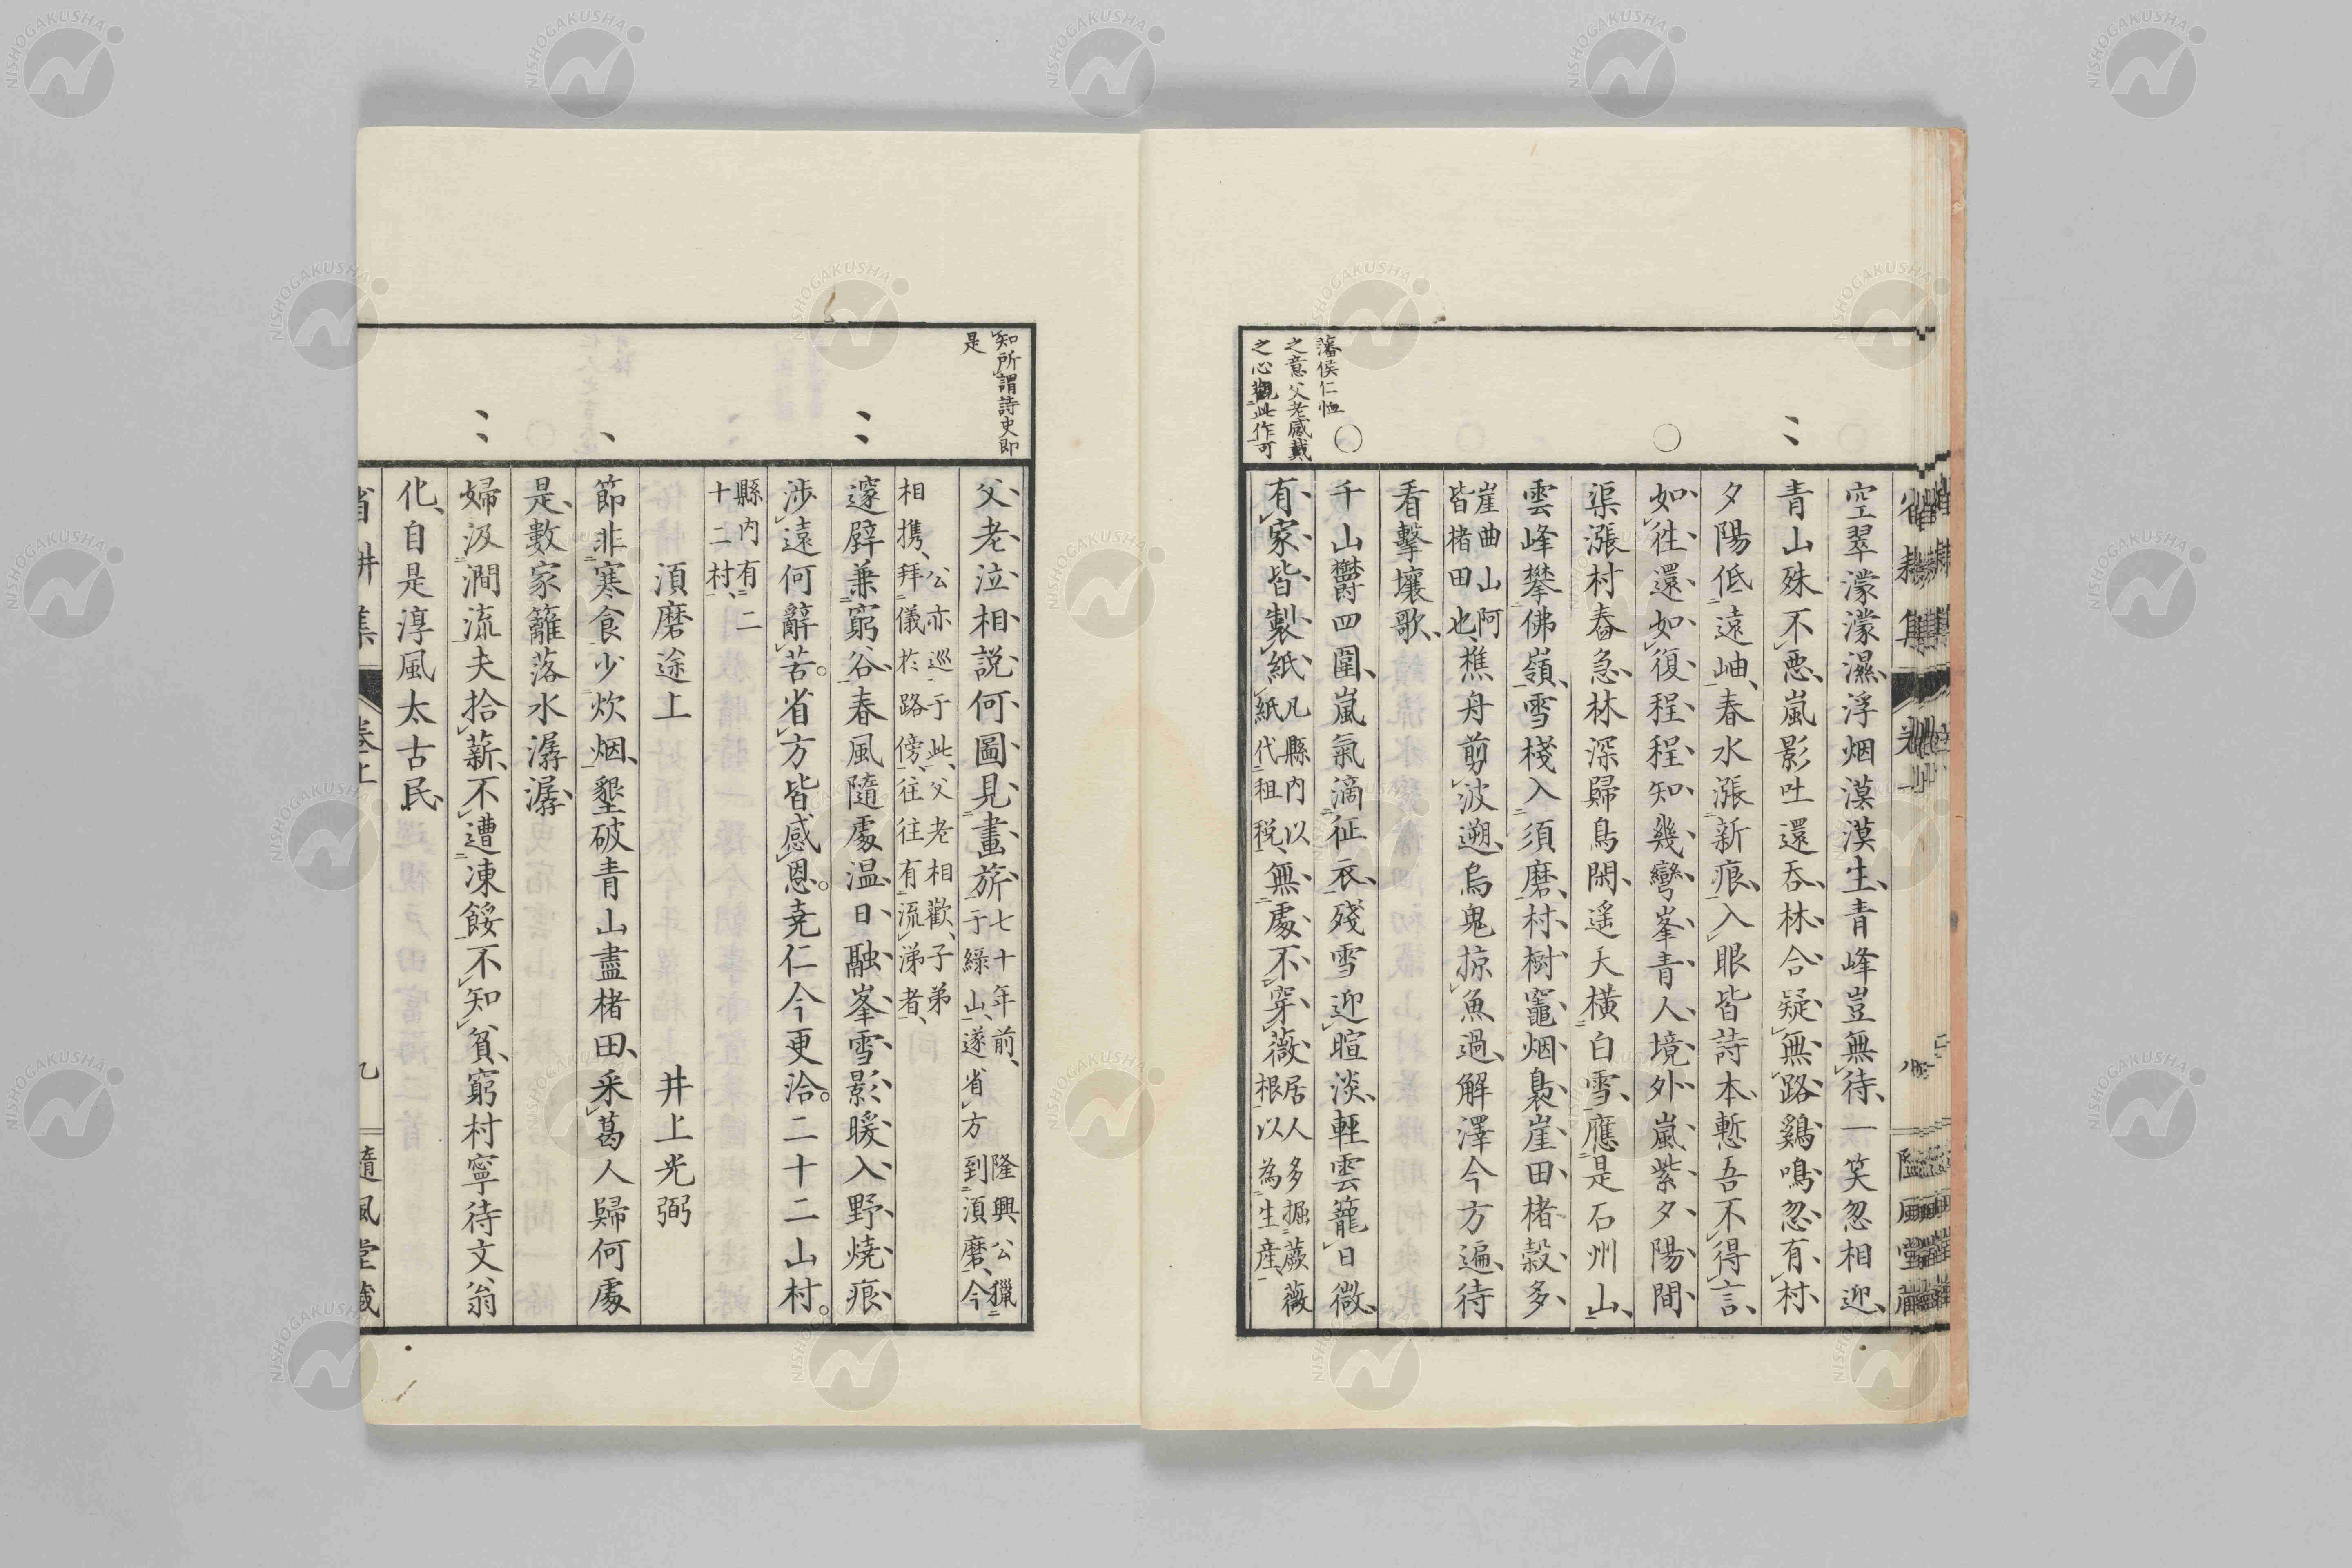 空翠濛濛濕浮烟漠漠生青峰豈無待一笑忽相迎
青山殊不惡嵐影吐還呑林合疑無路鷄鳴忽有村
夕陽低遠岫春水漲新痕入眼皆詩本慙吾不得言
如往還如復程程知幾彎峯青人境外嵐紫夕陽間
渠漲村舂急林深歸鳥閑遥天橫白雪應是石州山
雲峰攀佛嶺雪棧入須磨村樹竈烟裊崖田楮穀多
崖曲山阿
皆楮田也
樵舟剪波遡烏鬼掠魚過解澤今方遍待
看擊壤歌
千山鬱四圍嵐氣滴征衣殘雪迎暄淡輕雲籠日微
有家皆製紙
凡縣内以
紙代租税
無處不穿薇
居人多掘蕨薇
根以為生産
藩侯仁恤
之意父老感戴
之心觀此作可
知所謂詩史即
是
父老泣相説何圖見畫旂
七十年前隆興公獵
于緑山遂省方到須磨今
公亦巡于此父老相歡子弟
相携拜儀於路傍往往有流涕者
邃壁兼窮谷春風隨處温日融峯雪影暖入野燒痕
渉遠何辭苦省方皆感恩堯仁今更洽二十二山村
縣内有二
十二村
須磨途上
井上光弼
節非寒食少炊烟墾破青山盡楮田采葛人歸何處
是數家籬落水潺潺
婦汲澗流夫拾薪不遭凍餒不知貧窮村寧待文翁
化自是淳風太古民
省耕集
卷上
九
隨風堂藏